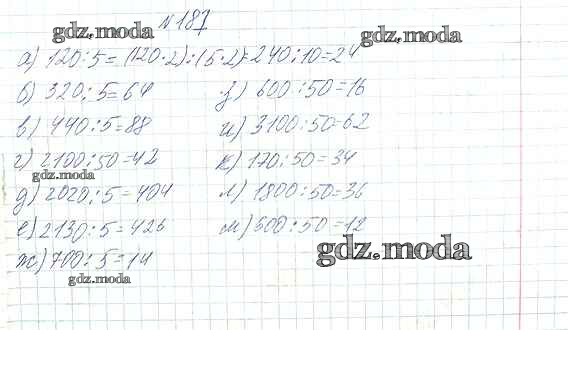 № 187
gdz.moda
gdz.moda
а) 120:5=(120·2):(5·2)=240:10=24
б) 320:5=64
з) 600:50=16
в) 440:5=88
и) 3100:50=62
г) 2100:50=42
к) 170:50=34
gdz.moda
д) 2020:5=404
л) 1800:50=36
е) 2130:5=426
м) 600:50=12
gdz.moda
ж) 700:5=14
gdz.moda